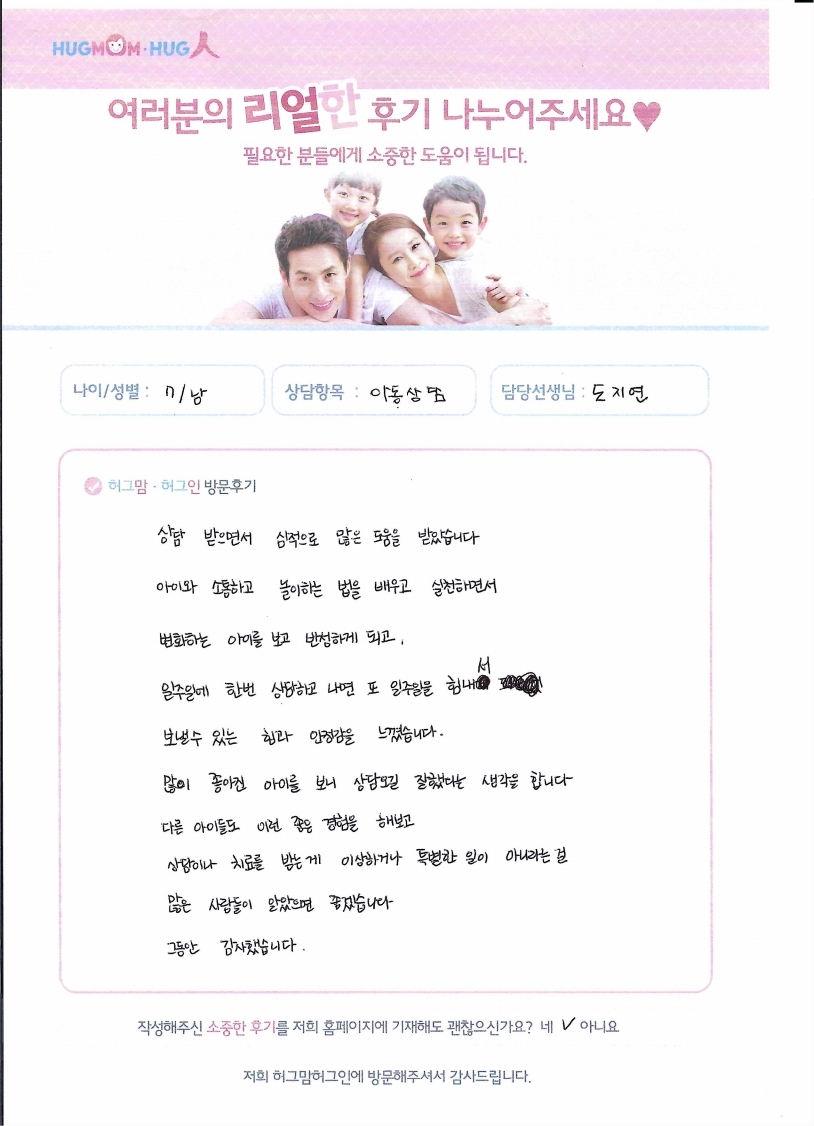 HUGMOM·HUG人
여러분의 리얼한 후기 나누어주세요♥
필요한 분들에게 소중한 도움이 됩니다.
나이/성별 : 7/남 상담항목 : 아동상담 담당선생님 : 도지연
허그맘·허그인 방문후기
상담 받으면서 심적으로 많은 도움을 받았습니다
아이와 소통하고 놀이하는 법을 배우고 실천하면서
변화하는 아이를 보고 반성하게 되고,
일주일에 한번 상담하고 나면 또 일주일을 힘내서
보낼수 있는 힘과 안정감을 느꼈습니다.
많이 좋아진 아이를 보니 상담오길 잘했다는 생각을 합니다
다른 아이들도 이런 좋은 경험을 해보고
상담이나 치료를 받는게 이상하거나 특별한 일이 아니라는 걸
많은 사람들이 알았으면 좋겠습니다
그동안 감사했습니다.
작성해주신 소중한 후기를 저희 홈페이지에 기재해도 괜찮으신가요? 네 ✓ 아니요
저희 허그맘허그인에 방문해주셔서 감사드립니다.